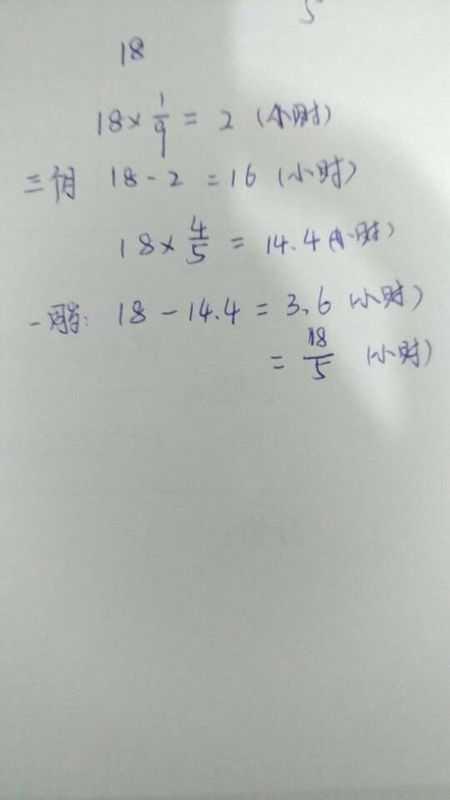 5
18
18×1/9=2（小时）
三月 18-2=16（小时）
18×4/5=14.4（小时）
一 18-14.4=3.6（小时）
=18/5（小时）